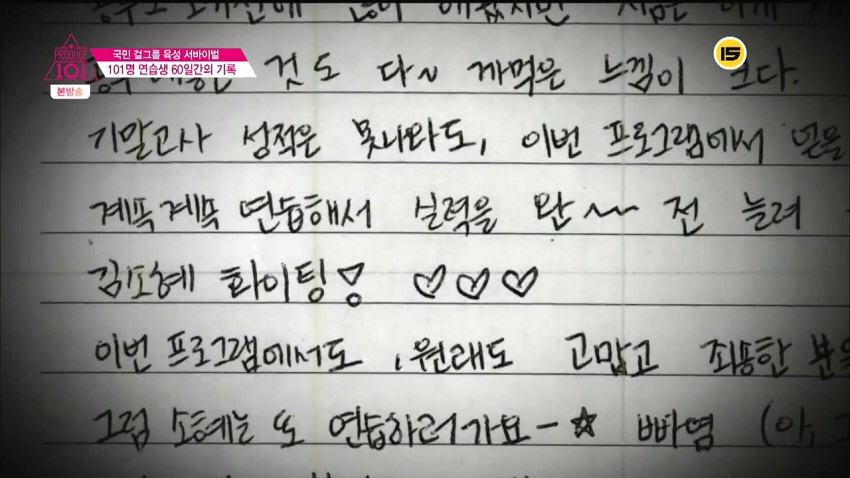 PRODUCE 101
국민 걸그룹 육성 서바이벌
101명 연습생 60일간의 기록
본방송
15
지금은
것도 다~ 까먹은 느낌이 크다.
기말고사 성적은 못나와도, 이번 프로그램에서
계속계속 연습해서 실력을 완~~ 전 늘려
김소혜 화이팅! ♡♡♡
이번 프로그램에서도, 원래도 고맙고 죄송한
그럼 소혜는 또 연습하러가요-☆ 빠염 (아,